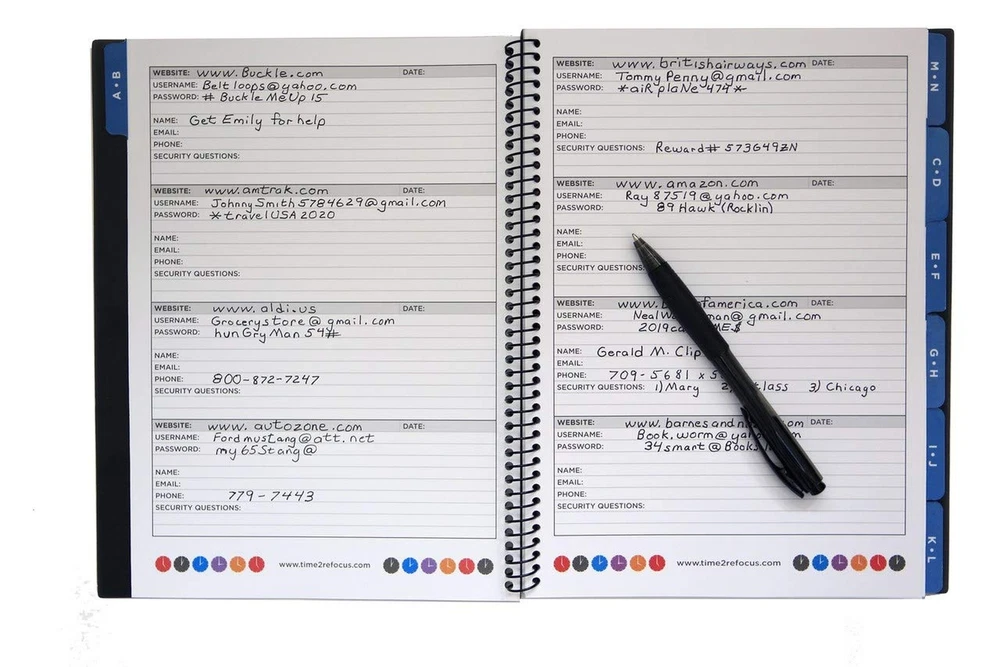 A • B
WEBSITE: www.Buckle.com DATE:
USERNAME: Beltloops@yahoo.com
PASSWORD: # BuckleMeUp 15
NAME: Get Emily for help
EMAIL:
PHONE:
SECURITY QUESTIONS:
WEBSITE: www.amtrak.com DATE:
USERNAME: JohnnySmith5784629@gmail.com
PASSWORD: *travelUSA2020
NAME:
EMAIL:
PHONE:
SECURITY QUESTIONS:
WEBSITE: www.aldi.us DATE:
USERNAME: Grocerystore@gmail.com
PASSWORD: hunGryMan54#
NAME:
EMAIL:
PHONE: 800-872-7247
SECURITY QUESTIONS:
WEBSITE: www.autozone.com DATE:
USERNAME: Fordmustang@att.net
PASSWORD: my65Stang@
NAME:
EMAIL:
PHONE: 779-7443
SECURITY QUESTIONS:
www.time2refocus.com
WEBSITE: www.britishairways.com DATE:
USERNAME: TommyPenny@gmail.com
PASSWORD: *aiRplaNe474*
NAME:
EMAIL:
PHONE:
SECURITY QUESTIONS: Reward# 573G49ZN
WEBSITE: www.amazon.com DATE:
USERNAME: Ray87519@yahoo.com
PASSWORD: 89 Hawk (Rocklin)
NAME:
EMAIL:
PHONE:
SECURITY QUESTIONS:
WEBSITE: DATE:
USERNAME:
PASSWORD:
NAME: Gerald M.
EMAIL:
PHONE: 709-5681 x
SECURITY QUESTIONS: 1) Mary 3) Chicago
WEBSITE: DATE:
USERNAME:
PASSWORD:
NAME:
EMAIL:
PHONE:
SECURITY QUESTIONS:
www.time2refocus.com
M • N
C • D
E • F
G • H
I • J
K • L